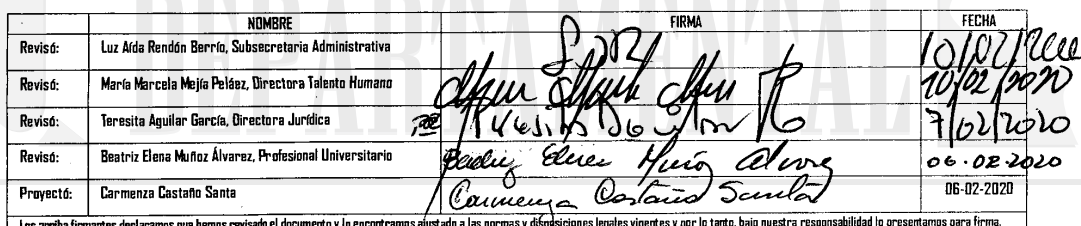 NOMBRE FIRMA FECHA
Revisó: Luz Aída Rendón Berrío, Subsecretaria Administrativa 10/02/2020
Revisó: María Marcela Mejía Peláez, Directora Talento Humano 10/02/2020
Revisó: Teresita Aguilar García, Directora Jurídica 7/02/2020
Revisó: Beatriz Elena Muñoz Álvarez, Profesional Universitario Beatriz Elena Muñoz Alvarez 06-02-2020
Proyectó: Carmenza Castaño Santa Carmenza Castaño Santa 06-02-2020
Los arriba firmantes declaramos que hemos revisado el documento y lo encontramos ajustado a las normas y disposiciones legales vigentes y por lo tanto, bajo nuestra responsabilidad lo presentamos para firma.